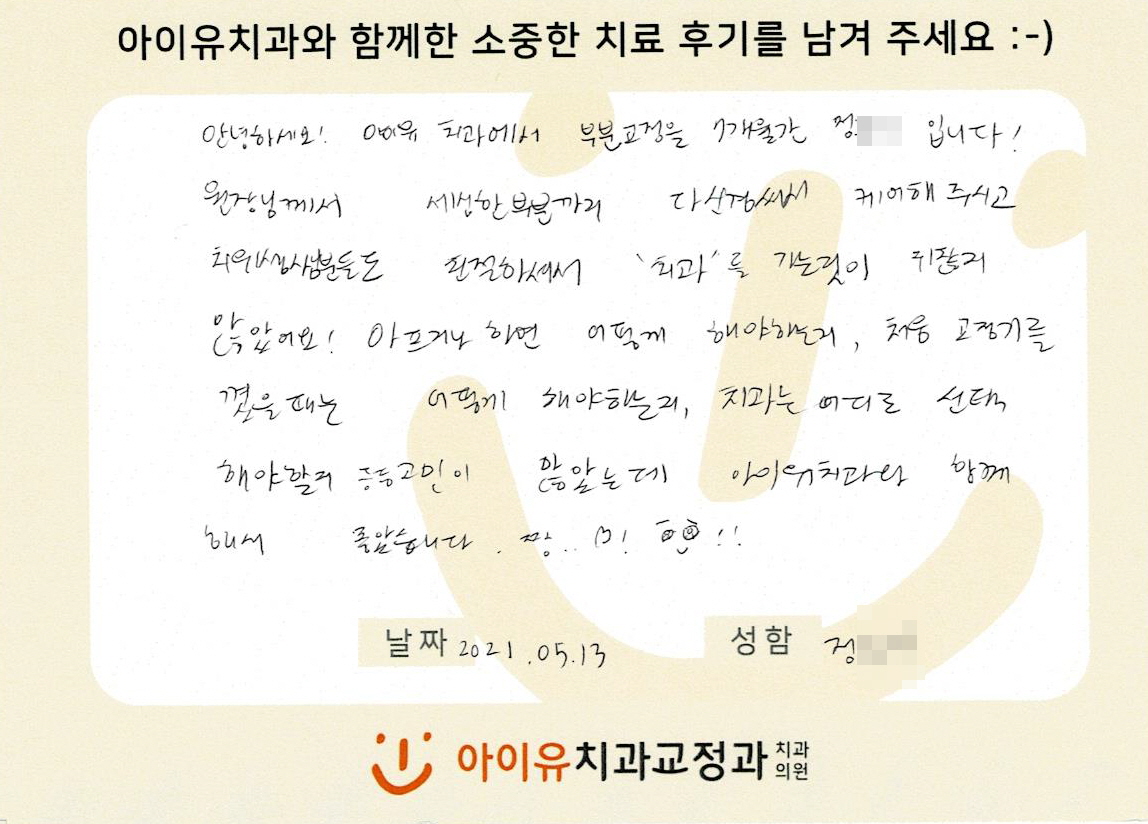 아이유치과와 함께한 소중한 치료 후기를 남겨 주세요 :-)
안녕하세요! 아이유 치과에서 부분교정을 7개월간 정 입니다!
원장님께서 세심한부분까지 다신경써서 케어해주시고
치위생사님분들도 친절하셔서 '치과'를 가는것이 귀찮지
않았어요! 아프거나 하면 어떻게 해야하는지, 처음 교정기를
꼈을때는 어떻게 해야하는지, 치과는 어디로 선택
해야할지 등등고민이 많았는데 아이유치과와 함께
해서 좋았습니다. 짱..
날짜 2021.05.13 성함 정
아이유치과교정과 치과의원